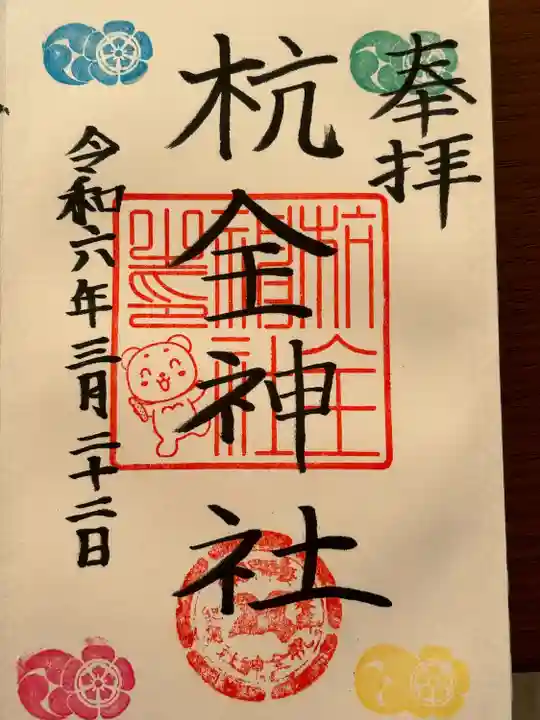 奉拝
杭全神社
令和六年三月二十二日
杭全
神社
之印